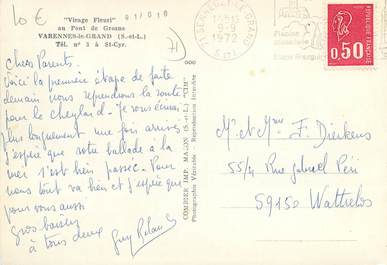 10€
01/016
71
"Virage Fleuri"
au Pont de Grosne
VARENNES-le-GRAND (S.-et-L.)
Tél. n° 5 à St-Cyr.
Chers Parents.
Voici la première étape de faite
demain nous reprendrons la route
pour le cheylard - Je vous écrirai
plus longuement une fois arrivés
J'espère que votre ballade à la
mer s'est bien passée. Pour
nous tout va bien et j'espère que
pour vous aussi
Gros baisers
à tous deux
COMBIER IMP. MACON (S.-et-L.) "CIM"
Photographie Véritable - Reproduction Interdite
LE GRAND
1972
0,50
Mr et Mme F. Dierkens
55/4 Rue Gabriel Péri
59150 Wattrelos